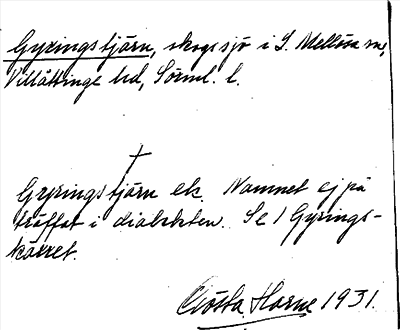 Gyringstjärn, skogssjö i S. Mellösa sn,
Villåttinge hd, Sörml. l.
Gyringstjärn ek. Namnet ej på
träffat i dialekten. Se 1 Gyrings-
kärret.
Gösta Harne 1931.